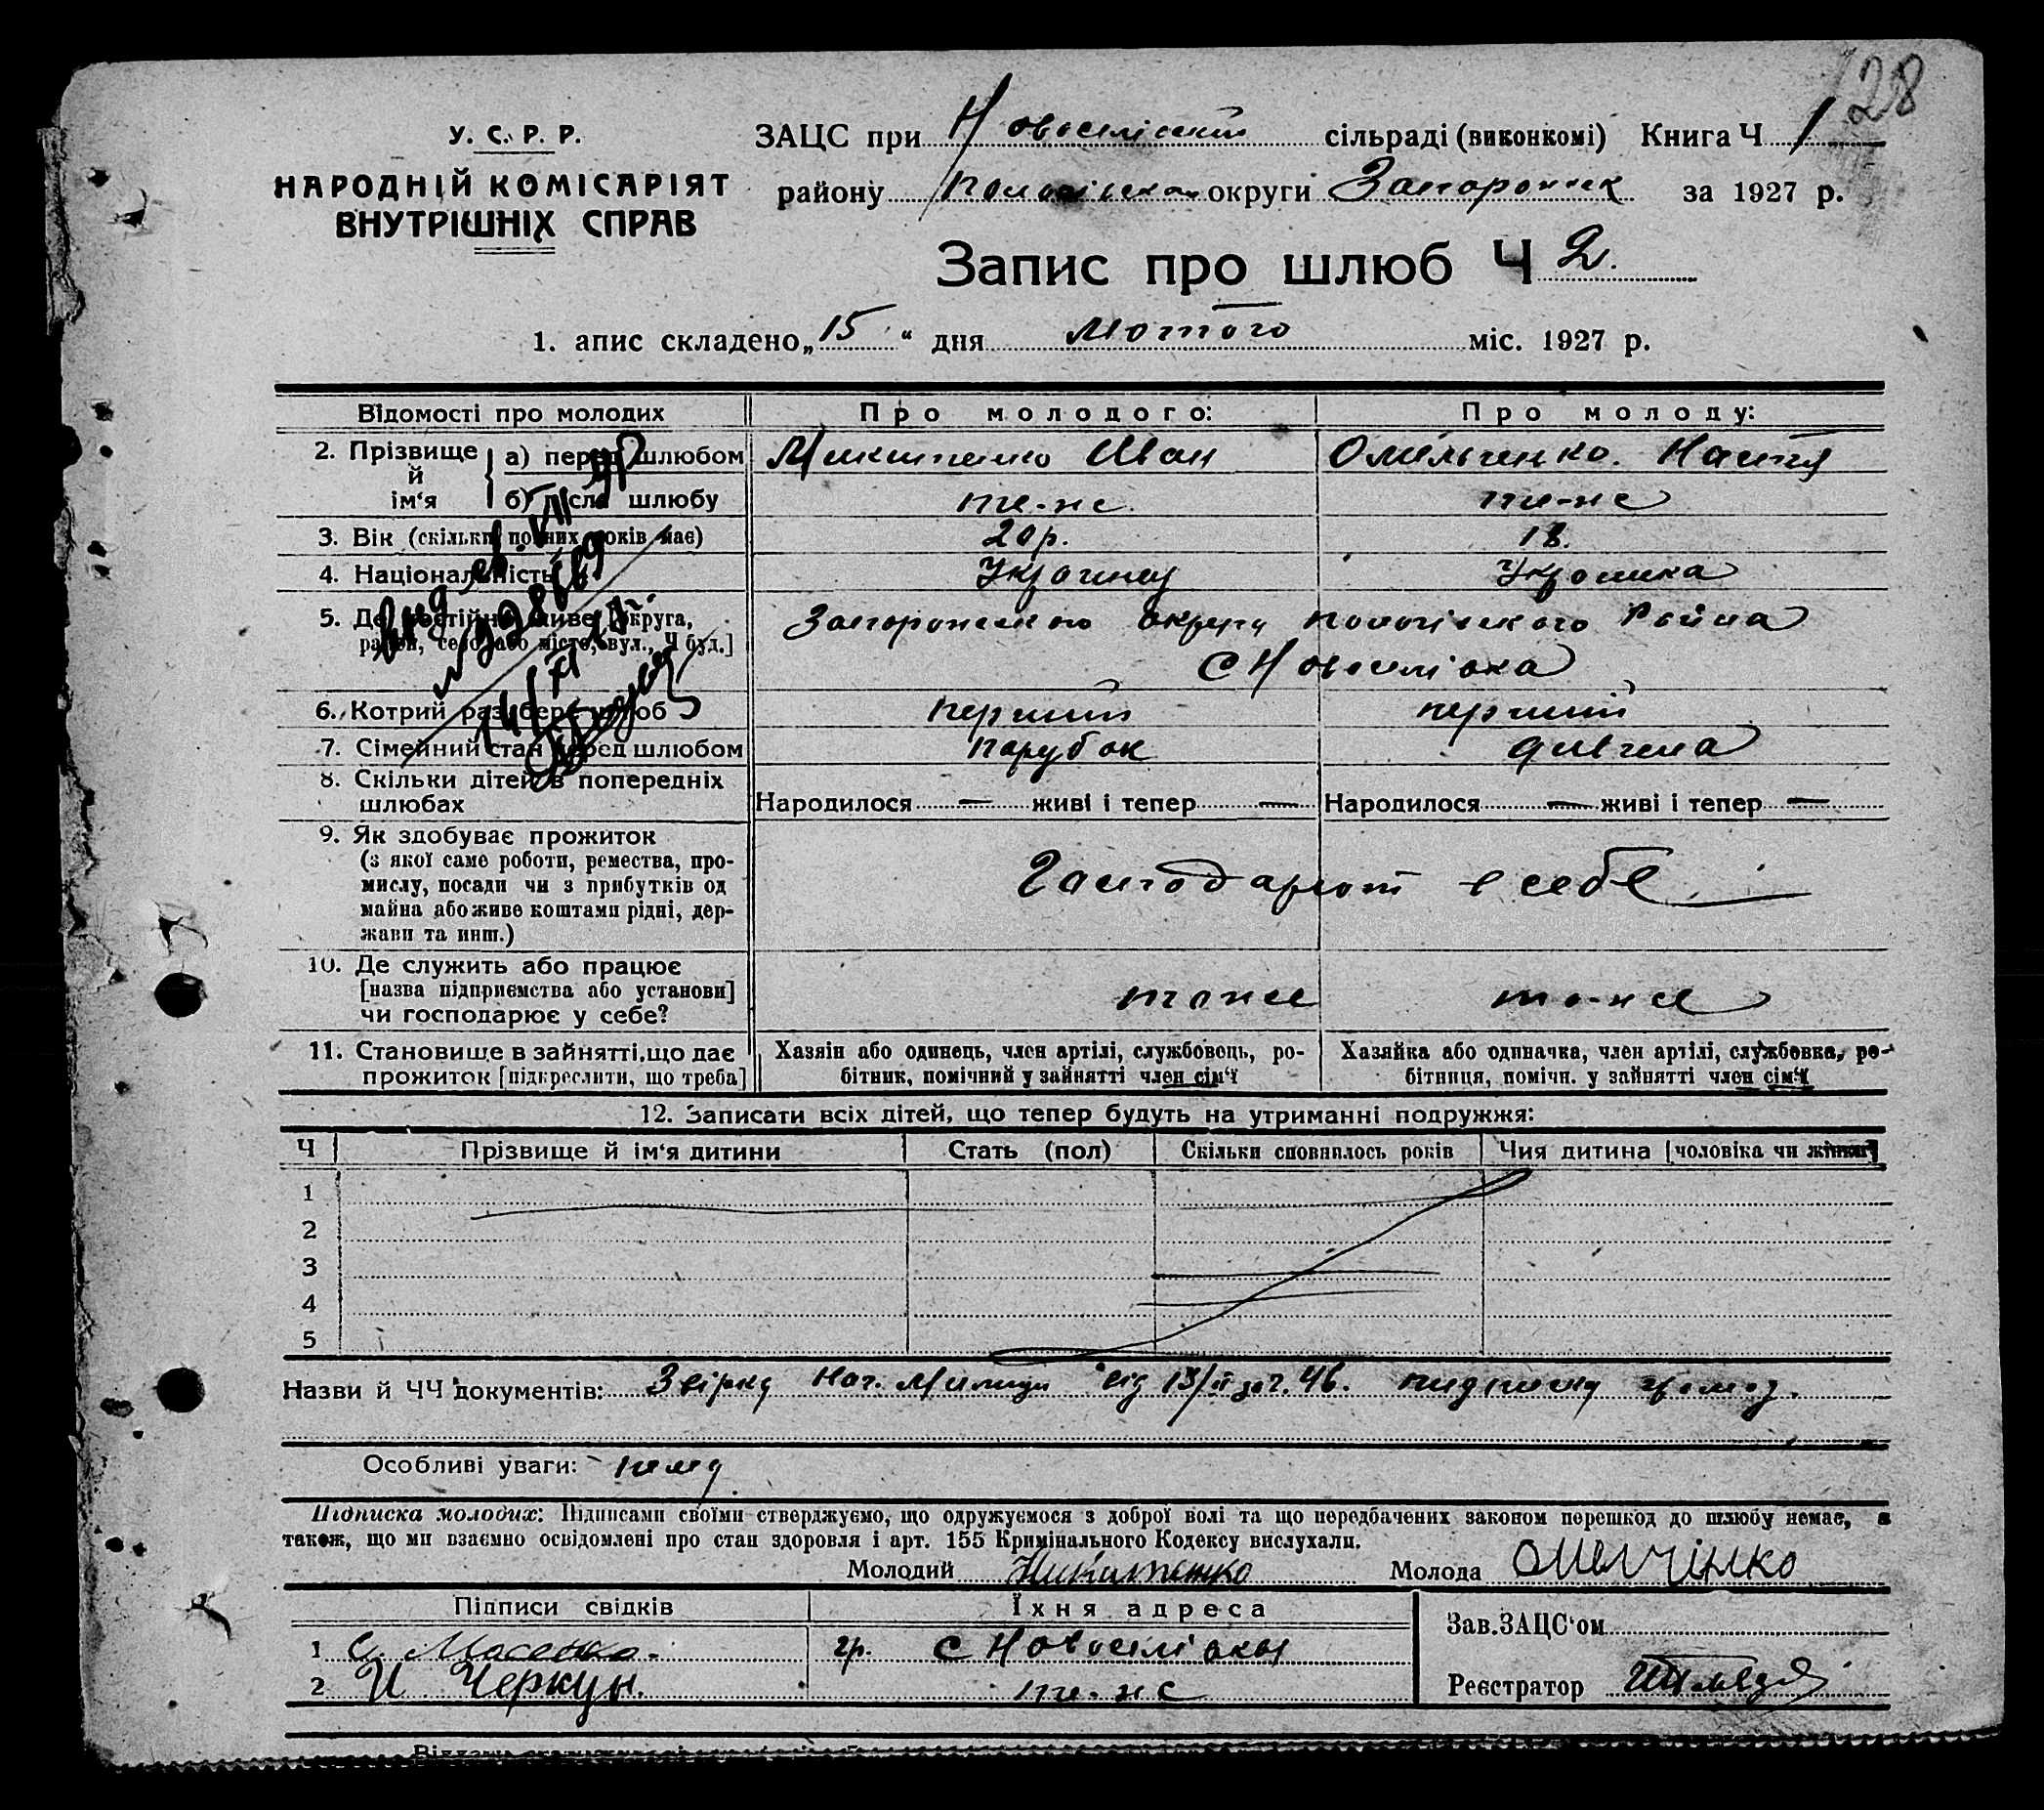 128
У. С. Р. Р.
НАРОДНІЙ КОМІСАРІЯТ
ВНУТРІШНІХ СПРАВ
ЗАЦС при Новоселівській сільраді (виконкомі) Книга Ч 1
району округи Запорожск за 1927 р.
Запис про шлюб Ч 2.
1. апис складено „15“ дня Лютого міс. 1927 р.
Відомості про молодих Про молодого: Про молоду:
2. Прізвище й ім‘я а) перед шлюбом Микитенко Иван Омельченко. Настя
б) після шлюбу те-же. те-же
3. Вік (скільки повних років має) 20 р. 18.
4. Національність Українец Українка
5. Де постійно живе [округа, Запорожского округу Пологівского Района
район, село або місто, вул., Ч буд.] С Новоселівка
6. Котрий раз бере шлюб перший перший
7. Сімейний стан перед шлюбом парубок дивчена
8. Скільки дітей в попередніх
шлюбах Народилося — живі і тепер — Народилося — живі і тепер —
9. Як здобуває прожиток
(з якої саме роботи, ремества, про-
мислу, посади чи з прибутків од
майна або живе коштами рідні, дер-
жави та инш.)
Господарют в себе
10. Де служить або працює
[назва підприємства або установи]
чи господарює у себе?
тоже то-же
11. Становище в зайнятті, що дає
прожиток [підкреслити, що треба]
Хазяін або одинець, член артілі, службовець, ро-
бітник, помічний у зайнятті член сім‘ї
Хазяйка або одиначка, член артілі, службовка, ро-
бітниця, помічн. у зайнятті член сім‘ї
12. Записати всіх дітей, що тепер будуть на утриманні подружжя:
Ч Прізвище й ім‘я дитини Стать (пол) Скільки сповнилось років Чия дитина [чоловіка чи жінки]
1
2
3
4
5
Назви й ЧЧ документів: Нач. Милиции від 13/II за ч. 46.
Особливі уваги:
Підписка молодих: Підписами своїми стверджуємо, що одружуємося з доброї волі та що передбачених законом перешкод до шлюбу немає, а
також, що ми взаємно освідомлені про стан здоровля і арт. 155 Кримінального Кодексу вислухали.
Молодий Микитенко Молода Омелчінко
Підписи свідків Їхня адреса
Зав. ЗАЦС‘ом
1 С. Мосенко. гр. С Новоселівкы
2 И Черкун. те-же
Реєстратор